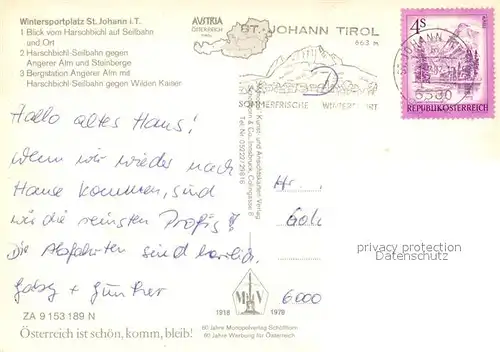 Wintersportplatz St. Johann i.T.
1 Blick vom Harschbichl auf Seilbahn
und Ort
2 Harschbichl-Seilbahn gegen
Angerer Alm und Steinberge
3 Bergstation Angerer Alm mit
Harschbichl-Seilbahn gegen Wilden Kaiser
AUSTRIA
ÖSTERREICH
ST. JOHANN TIROL
663 m
SOMMERFRISCHE WINTERSPORT
4S
REPUBLIK ÖSTERREICH
ST. JOHANN IN
6380
Hallo altes Haus!
Wenn wir wieder nach
Hause kommen, sind
wir die reinsten Profis
Die Abfahrten sind herrlich.
Gaby + Günther
Kunst- und Ansichtskarten Verlag
Innsbruck, Colingasse
Tel. Nr.
Hr.
6000
privacy protection
Datenschutz
M V
1918 1978
60 Jahre Monopolverlag Schöllhorn
60 Jahre Werbung für Österreich
ZA 9 153 189 N
Österreich ist schön, komm, bleib!